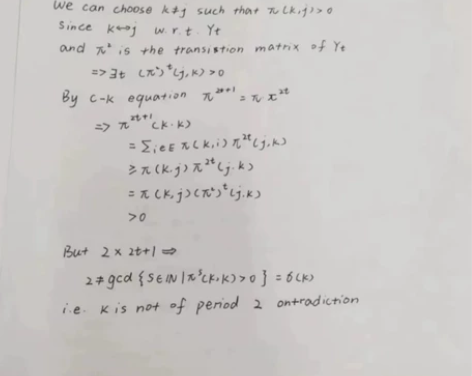 we can choose k≠j such that π(k,j)>0
since k↔j w.r.t. Yt
and π² is the transistion matrix of Yt
=> ∃t (π²)ᵗ(j,k)>0
By C-K equation π²ᵗ⁺¹ = π π²ᵗ
=> π²ᵗ⁺¹(k.k)
= Σi∈E π(k,i) π²ᵗ(j,k)
≥ π(k.j) π²ᵗ(j.k)
= π(k,j)(π²)ᵗ(j.k)
>0
But 2 ∤ 2t+1 =>
2≠gcd {S∈IN|πˢ(k,k)>0} = δ(k)
i.e. k is not of period 2 ontradiction